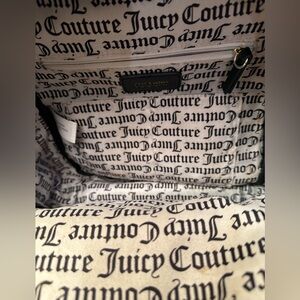 Juicy Couture Juicy Couture
Juicy Couture
Juicy Couture
Couture Juicy Couture
Juicy Couture
Couture Juicy Couture
Juicy Couture
Couture Juicy Couture
Juicy Couture
Couture Juicy
Juicy Couture
outure Juicy Couture
Juicy Couture
uture Juicy Couture